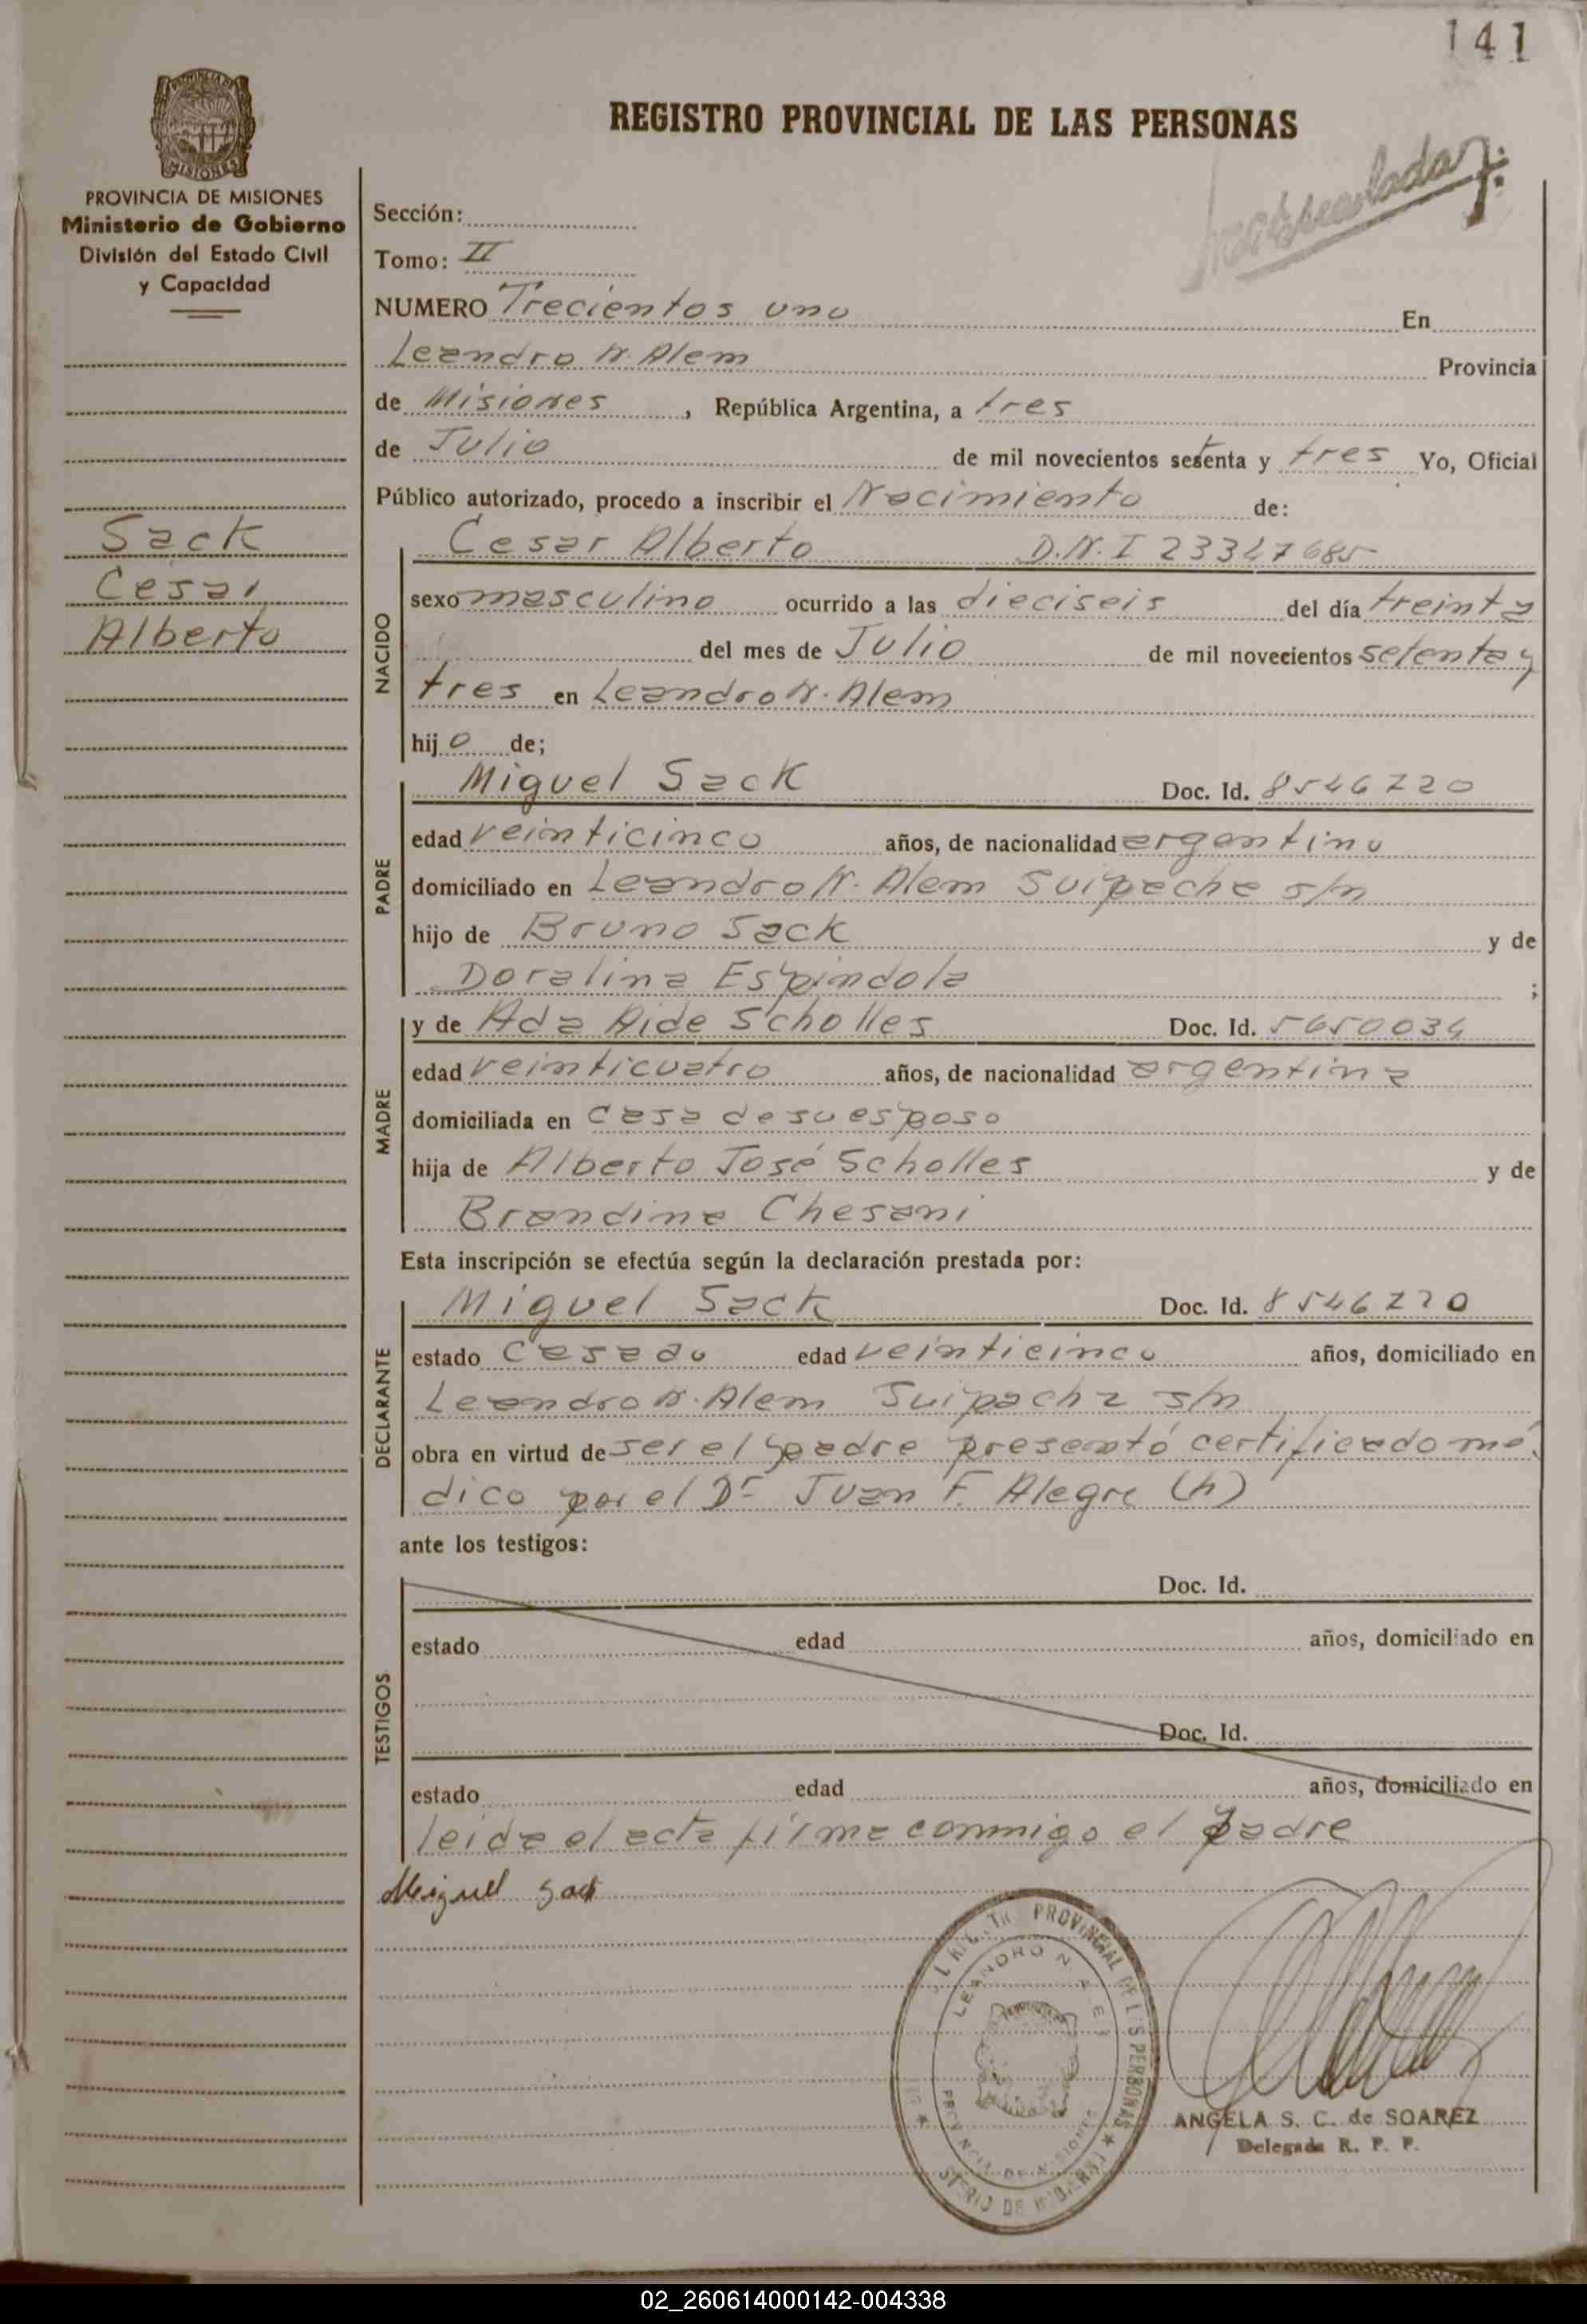 141
REGISTRO PROVINCIAL DE LAS PERSONAS
PROVINCIA DE MISIONES
Ministerio de Gobierno
División del Estado Civil
y Capacidad
Sack
Cesar
Alberto
Sección:
Tomo: II
NUMERO Trecientos uno En
Leandro N. Alem Provincia
de Misiones, República Argentina, a tres
de Julio de mil novecientos setenta y tres Yo, Oficial
Público autorizado, procedo a inscribir el Nacimiento de:
NACIDO
Cesar Alberto D.N.I 23327685
sexo masculino ocurrido a las dieciseis del día treinta
del mes de Julio de mil novecientos setenta y
tres en Leandro N. Alem
hijo de;
PADRE
Miguel Sack Doc. Id. 8546220
edad veinticinco años, de nacionalidad argentino
domiciliado en Leandro N. Alem Suipacha s/n
hijo de Bruno Sack y de
Doralina Espindola ;
MADRE
y de Ada Aide Scholles Doc. Id. 5650034
edad veinticuatro años, de nacionalidad argentina
domiciliada en casa de su esposo
hija de Alberto José Scholles y de
Brandina Chesani
Esta inscripción se efectúa según la declaración prestada por:
DECLARANTE
Miguel Sack Doc. Id. 8546220
estado casado edad veinticinco años, domiciliado en
Leandro N. Alem Suipacha s/n
obra en virtud de ser el padre presentó certificado mé
dico por el Dr Juan F. Alegre (h)
ante los testigos:
TESTIGOS
Doc. Id.
estado edad años, domiciliado en
Doc. Id.
estado edad años, domiciliado en
leida el acta firma conmigo el padre
Miguel Sack
PROVINCIAL DE LAS PERSONAS
LEANDRO N. ALEM
PROVINCIA DE MISIONES
ANGELA S. C. de SOAREZ
Delegada R. P. P.
02_260614000142-004338